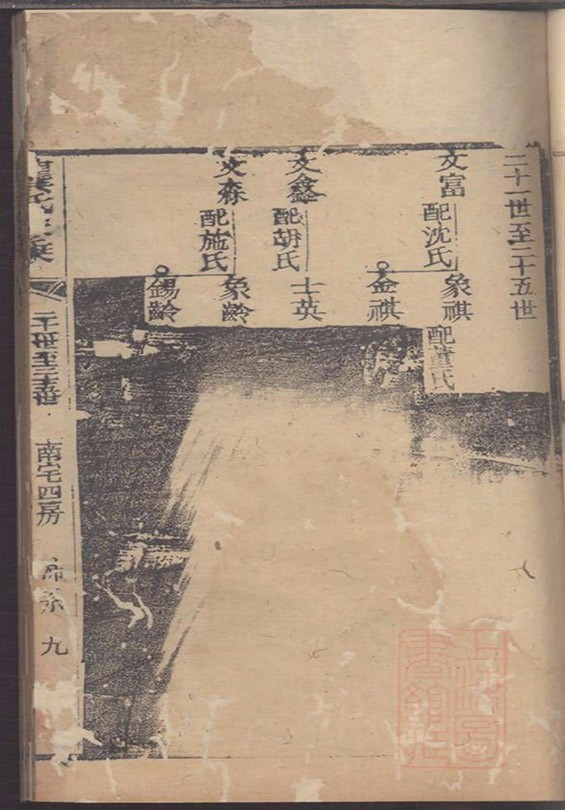 二十一世至二十五世
文富
配沈氏
象祺
配董氏
金祺
文鑫
配胡氏
士英
文森
配施氏
象齡
錫齡
二十一世至二十五世
南宅四房
九